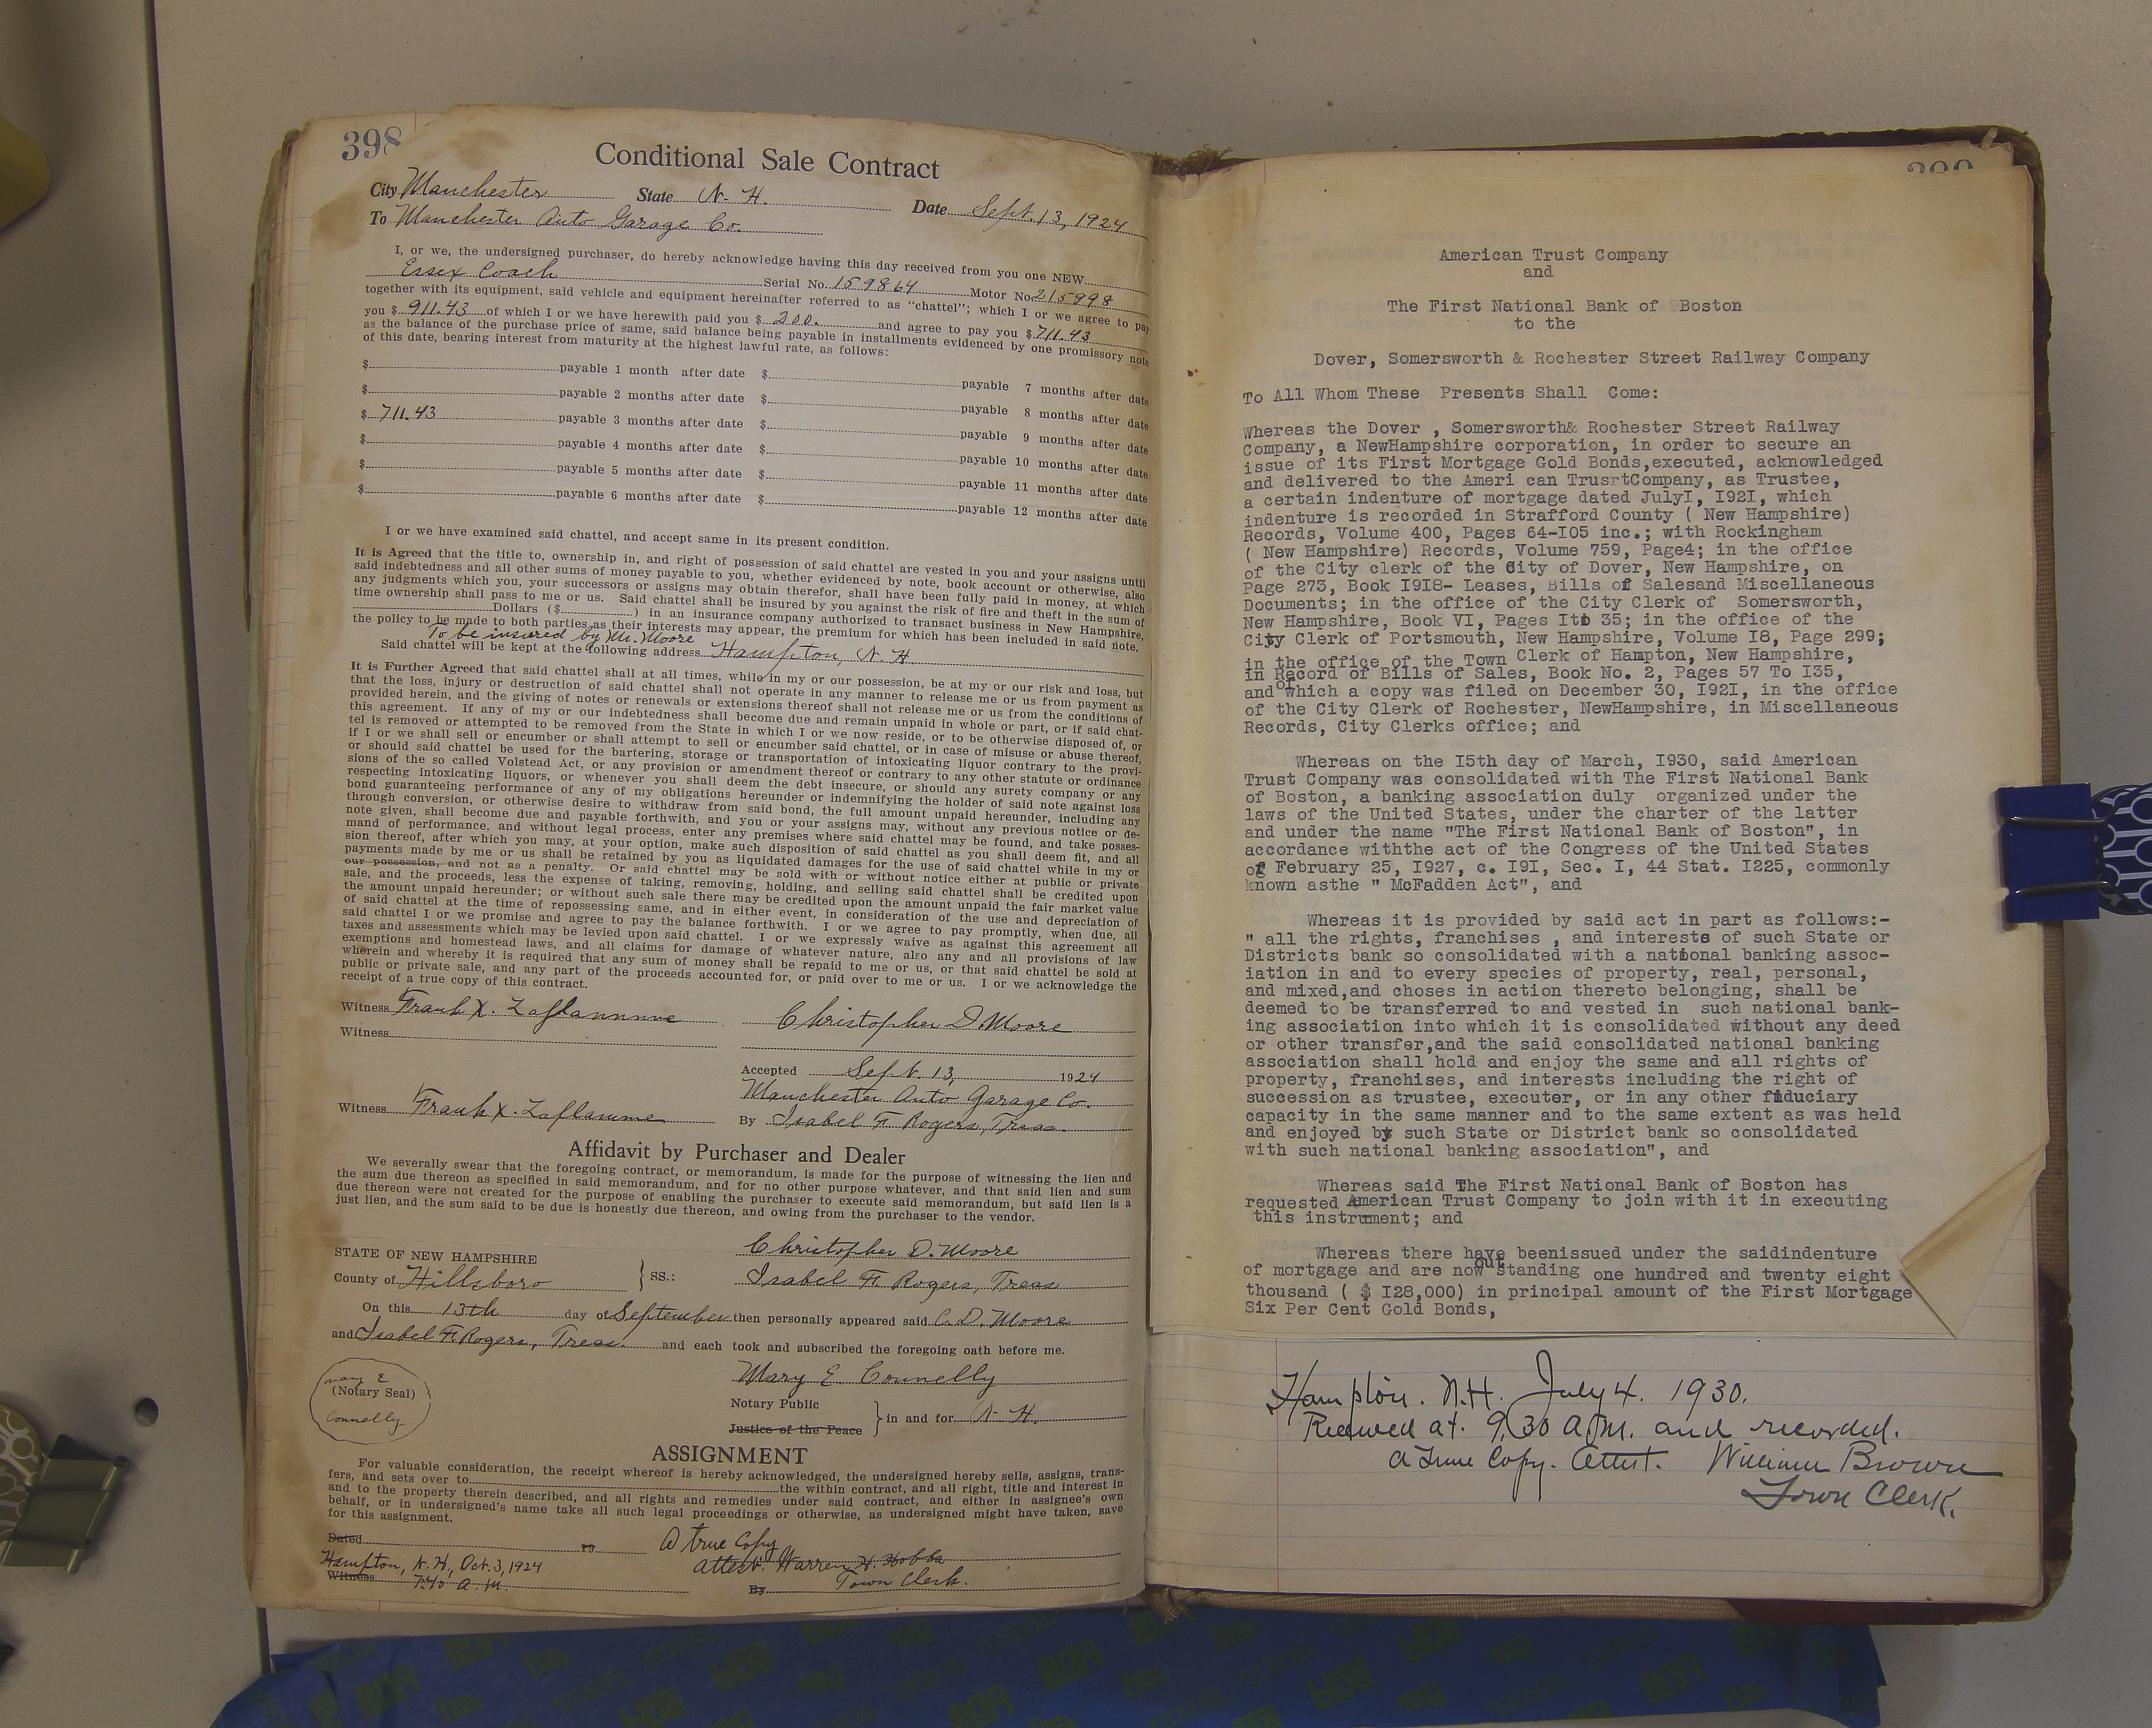 398
Conditional Sale Contract
City Manchester State N. H. Date Sept. 13, 1924
To Manchester Auto Garage Co.
I, or we, the undersigned purchaser, do hereby acknowledge having this day received from you one NEW
Essex Coach Serial No. 159864 Motor No. 215998
together with its equipment, said vehicle and equipment hereinafter referred to as "chattel"; which I or we agree to pay
you $ 911.43 of which I or we have herewith paid you $ 200. and agree to pay you $ 711.43
as the balance of the purchase price of same, said balance being payable in installments evidenced by one promissory note
of this date, bearing interest from maturity at the highest lawful rate, as follows:
$ payable 1 month after date $ payable 7 months after date
$ payable 2 months after date $ payable 8 months after date
$ 711.43 payable 3 months after date $ payable 9 months after date
$ payable 4 months after date $ payable 10 months after date
$ payable 5 months after date $ payable 11 months after date
$ payable 6 months after date $ payable 12 months after date
I or we have examined said chattel, and accept same in its present condition.
It is Agreed that the title to, ownership in, and right of possession of said chattel are vested in you and your assigns until
said indebtedness and all other sums of money payable to you, whether evidenced by note, book account or otherwise, also
any judgments which you, your successors or assigns may obtain therefor, shall have been fully paid in money, at which
time ownership shall pass to me or us. Said chattel shall be insured by you against the risk of fire and theft in the sum of
Dollars ($ ) in an insurance company authorized to transact business in New Hampshire,
the policy to be made to both parties as their interests may appear, the premium for which has been included in said note.
To be insured by Mr. Moore
Said chattel will be kept at the following address Hampton, N. H.
It is Further Agreed that said chattel shall at all times, while in my or our possession, be at my or our risk and loss, but
that the loss, injury or destruction of said chattel shall not operate in any manner to release me or us from payment as
provided herein, and the giving of notes or renewals or extensions thereof shall not release me or us from the conditions of
this agreement. If any of my or our indebtedness shall become due and remain unpaid in whole or part, or if said chat-
tel is removed or attempted to be removed from the State in which I or we now reside, or to be otherwise disposed of, or
if I or we shall sell or encumber or shall attempt to sell or encumber said chattel, or in case of misuse or abuse thereof,
or should said chattel be used for the bartering, storage or transportation of intoxicating liquor contrary to the provi-
sions of the so called Volstead Act, or any provision or amendment thereof or contrary to any other statute or ordinance
respecting intoxicating liquors, or whenever you shall deem the debt insecure, or should any surety company or any
bond guaranteeing performance of any of my obligations hereunder or indemnifying the holder of said note against loss
through conversion, or otherwise desire to withdraw from said bond, the full amount unpaid hereunder, including any
note given, shall become due and payable forthwith, and you or your assigns may, without any previous notice or de-
mand of performance, and without legal process, enter any premises where said chattel may be found, and take posses-
sion thereof, after which you may, at your option, make such disposition of said chattel as you shall deem fit, and all
payments made by me or us shall be retained by you as liquidated damages for the use of said chattel while in my or
our possession, and not as a penalty. Or said chattel may be sold with or without notice either at public or private
sale, and the proceeds, less the expense of taking, removing, holding, and selling said chattel shall be credited upon
the amount unpaid hereunder; or without such sale there may be credited upon the amount unpaid the fair market value
of said chattel at the time of repossessing same, and in either event, in consideration of the use and depreciation of
said chattel I or we promise and agree to pay the balance forthwith. I or we agree to pay promptly, when due, all
taxes and assessments which may be levied upon said chattel. I or we expressly waive as against this agreement all
exemptions and homestead laws, and all claims for damage of whatever nature, also any and all provisions of law
wherein and whereby it is required that any sum of money shall be repaid to me or us, or that said chattel be sold at
public or private sale, and any part of the proceeds accounted for, or paid over to me or us. I or we acknowledge the
receipt of a true copy of this contract.
Witness Frank X. Laflamme Christopher D. Moore
Witness
Accepted Sept. 13, 1924
Manchester Auto Garage Co.
Witness Frank X. Laflamme By Isabel F. Rogers, Treas.
Affidavit by Purchaser and Dealer
We severally swear that the foregoing contract, or memorandum, is made for the purpose of witnessing the lien and
the sum due thereon as specified in said memorandum, and for no other purpose whatever, and that said lien and sum
due thereon were not created for the purpose of enabling the purchaser to execute said memorandum, but said lien is a
just lien, and the sum said to be due is honestly due thereon, and owing from the purchaser to the vendor.
Christopher D. Moore
STATE OF NEW HAMPSHIRE
County of Hillsboro } SS.: Isabel F. Rogers, Treas
On this 13th day of September then personally appeared said C. D. Moore
and Isabel F. Rogers, Treas. and each took and subscribed the foregoing oath before me.
Mary E. Connelly
Mary E
(Notary Seal)
Connelly
Notary Public
Justice of the Peace } in and for N. H.
ASSIGNMENT
For valuable consideration, the receipt whereof is hereby acknowledged, the undersigned hereby sells, assigns, trans-
fers, and sets over to the within contract, and all right, title and interest in
and to the property therein described, and all rights and remedies under said contract, and either in assignee's own
behalf, or in undersigned's name take all such legal proceedings or otherwise, as undersigned might have taken, save
for this assignment.
Dated 19 A true Copy
Hampton, N. H., Oct. 3, 1924 attest. Warren H. Hobbs
Witness 7:40 A. M. By Town Clerk.
399
American Trust Company
and
The First National Bank of Boston
to the
Dover, Somersworth & Rochester Street Railway Company
To All Whom These Presents Shall Come:
Whereas the Dover , Somersworth& Rochester Street Railway
Company, a NewHampshire corporation, in order to secure an
issue of its First Mortgage Gold Bonds,executed, acknowledged
and delivered to the Ameri can TrusrtCompany, as Trustee,
a certain indenture of mortgage dated JulyI, I92I, which
indenture is recorded in Strafford County ( New Hampshire)
Records, Volume 400, Pages 64-I05 inc.; with Rockingham
( New Hampshire) Records, Volume 759, Page4; in the office
of the City clerk of the City of Dover, New Hampshire, on
Page 273, Book I9I8- Leases, Bills of Salesand Miscellaneous
Documents; in the office of the City Clerk of Somersworth,
New Hampshire, Book VI, Pages Ito 35; in the office of the
City Clerk of Portsmouth, New Hampshire, Volume I8, Page 299;
in the office of the Town Clerk of Hampton, New Hampshire,
in Record of Bills of Sales, Book No. 2, Pages 57 To I35,
and of which a copy was filed on December 30, I92I, in the office
of the City Clerk of Rochester, NewHampshire, in Miscellaneous
Records, City Clerks office; and
Whereas on the I5th day of March, I930, said American
Trust Company was consolidated with The First National Bank
of Boston, a banking association duly organized under the
laws of the United States, under the charter of the latter
and under the name "The First National Bank of Boston", in
accordance withthe act of the Congress of the United States
of February 25, I927, c. I9I, Sec. I, 44 Stat. I225, commonly
known asthe " McFadden Act", and
Whereas it is provided by said act in part as follows:-
" all the rights, franchises , and interests of such State or
Districts bank so consolidated with a national banking assoc-
iation in and to every species of property, real, personal,
and mixed,and choses in action thereto belonging, shall be
deemed to be transferred to and vested in such national bank-
ing association into which it is consolidated without any deed
or other transfer,and the said consolidated national banking
association shall hold and enjoy the same and all rights of
property, franchises, and interests including the right of
succession as trustee, executer, or in any other fiduciary
capacity in the same manner and to the same extent as was held
and enjoyed by such State or District bank so consolidated
with such national banking association", and
Whereas said The First National Bank of Boston has
requested American Trust Company to join with it in executing
this instrument; and
Whereas there have beenissued under the saidindenture
of mortgage and are now outstanding one hundred and twenty eight
thousand ( $ I28,000) in principal amount of the First Mortgage
Six Per Cent Gold Bonds,
Hampton. N.H. July 4. 1930.
Received at. 9,30 A.M. and recorded.
A True Copy. Attest. William Brown
Town Clerk.